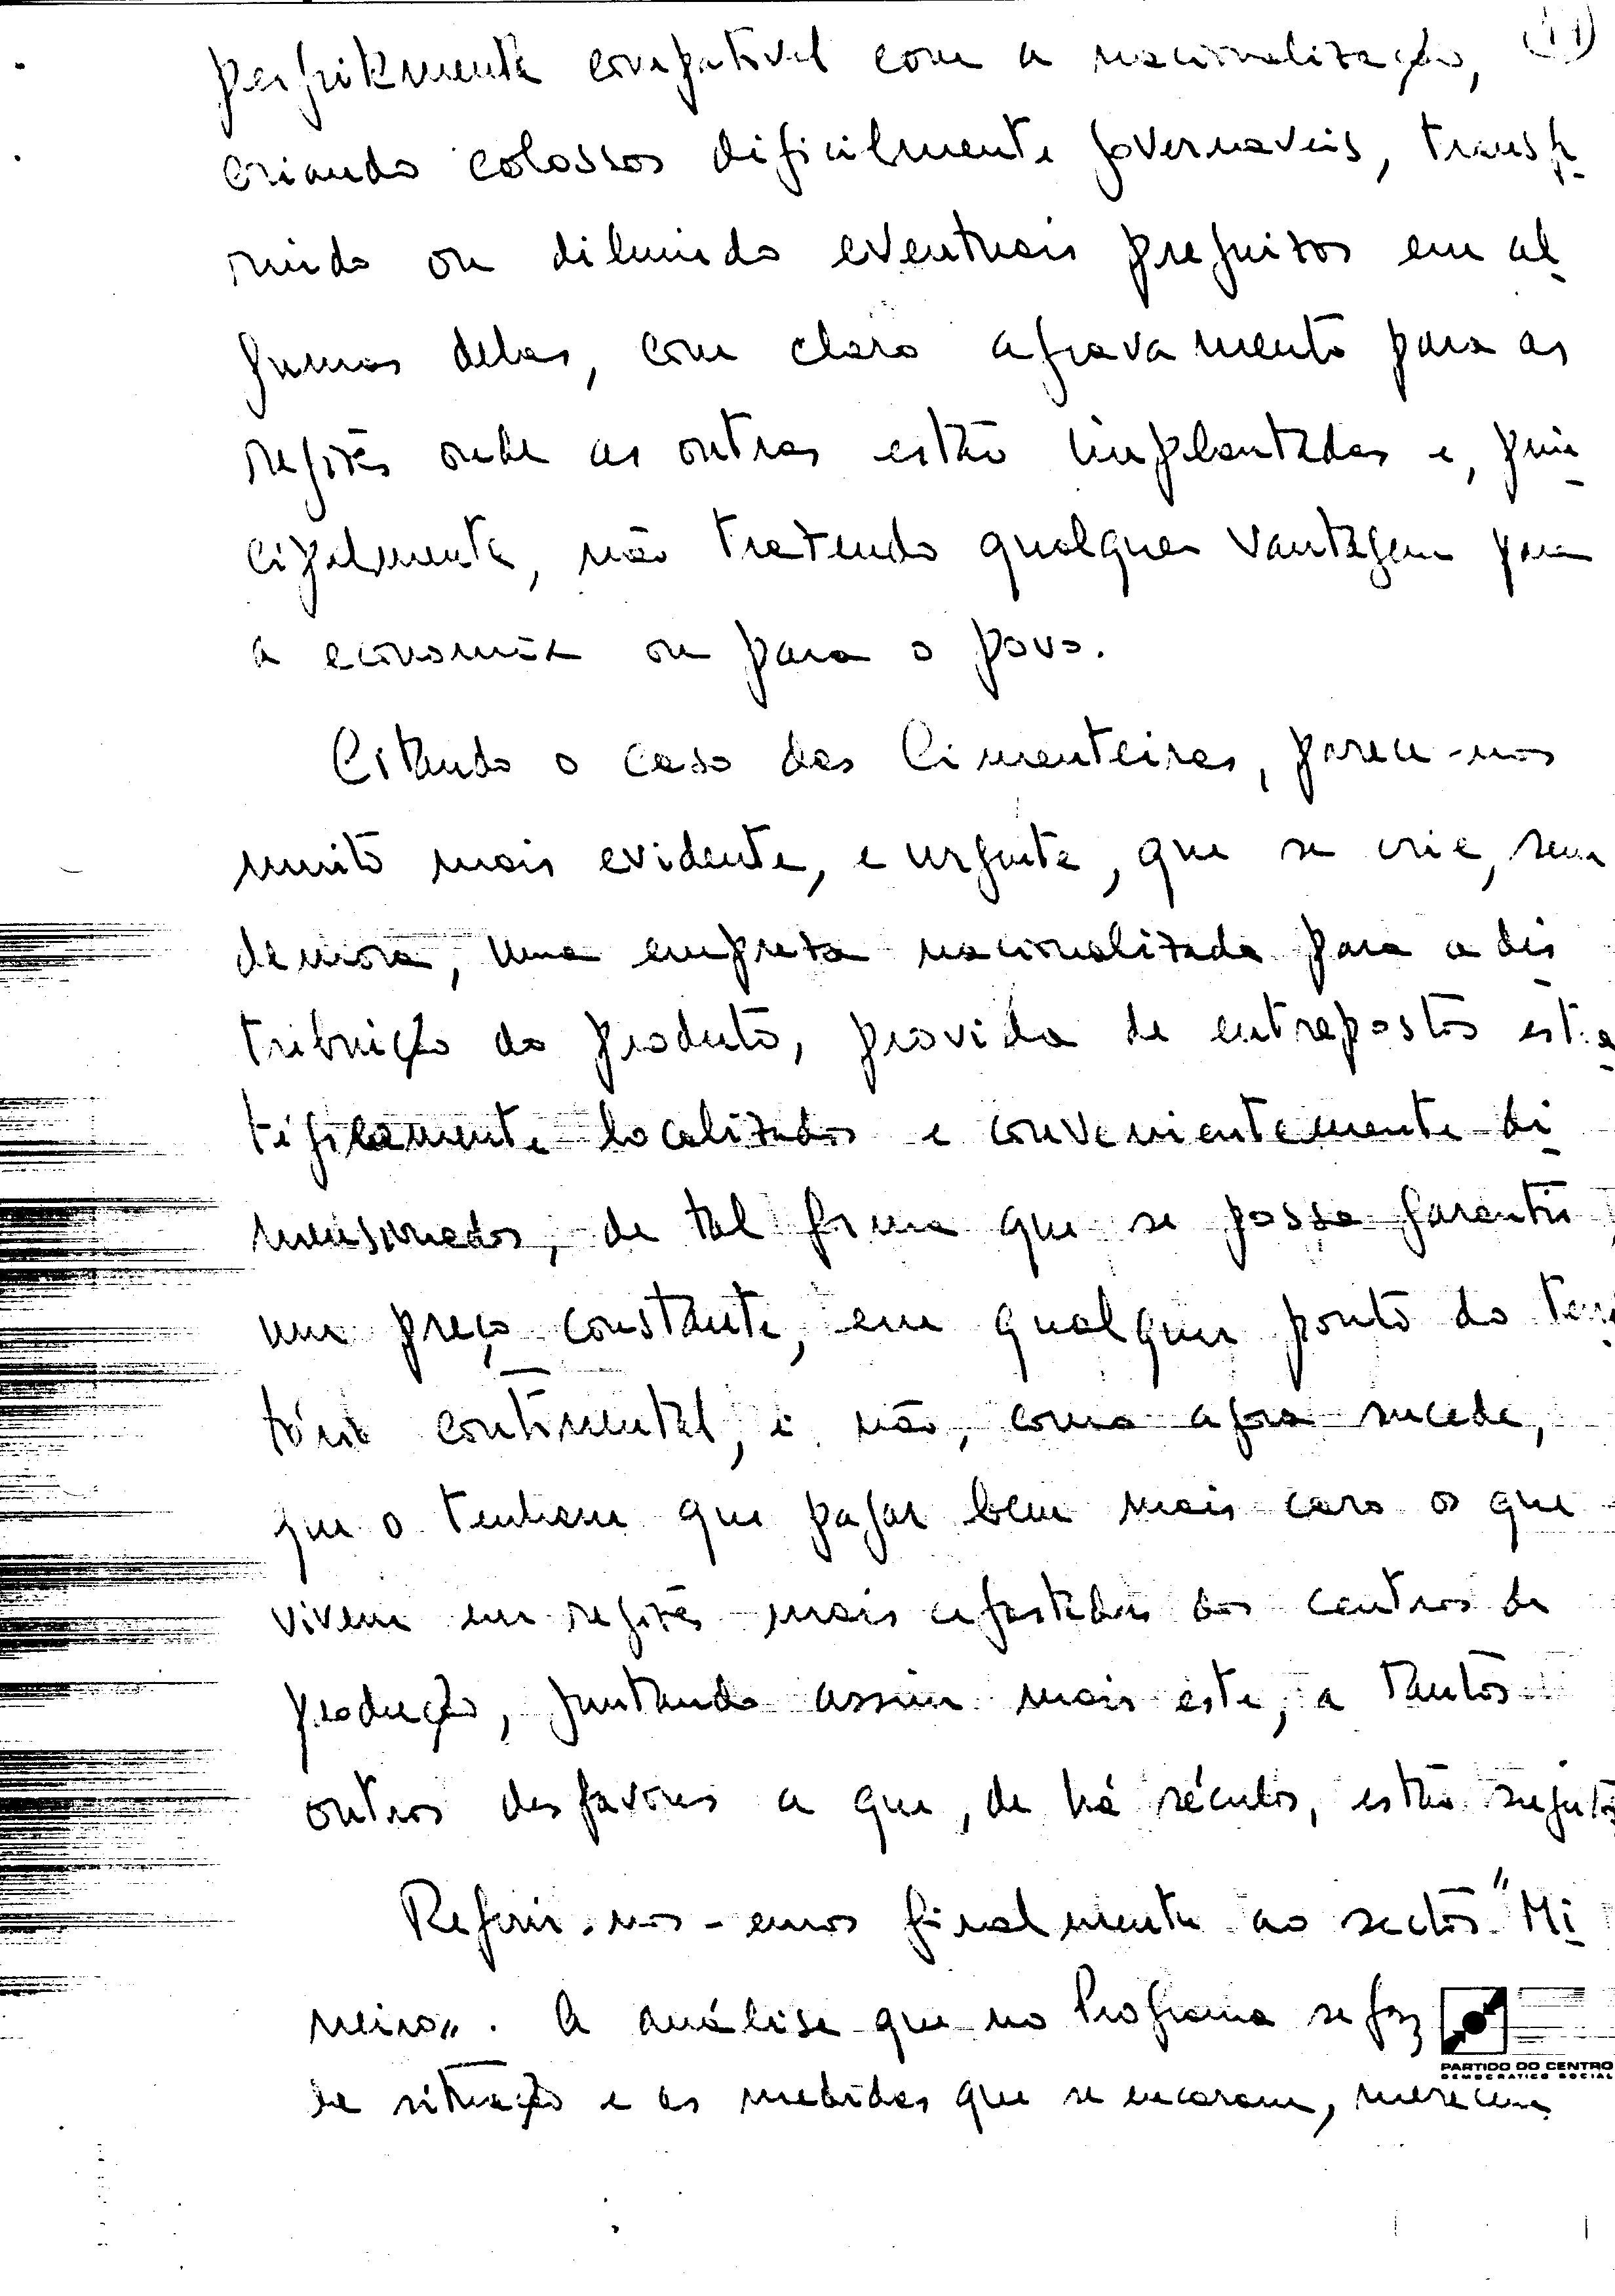 (11)
perfeitamente compatível com a nacionalização,
criando colossos dificilmente governaveis, transfe
rindo ou diluindo eventuais prejuizos em al
gumas delas, com claro agravamento para as
regiões onde as outras estão implantadas e, prin
cipalmente, não trazendo qualquer vantagem para
a economia ou para o povo.
Citando o caso das Cimenteiras, parece-nos
muito mais evidente, e urgente, que se crie, sem
demora, uma empreza nacionalizada para a dis
tribuição do produto, provida de entrepostos estra
tégicamente localizados e convenientemente di
mensionados, de tal forma que se possa garantir,
um preço constante, em qualquer ponto do terri
tório continental, e não, como agora sucede,
que o tenham que pagar bem mais caro os que
vivem em regiões mais afastadas dos centros de
produção, juntando assim mais este, a tantos
outros desfavores a que, de há séculos, estão sujeitos
Referir-nos-emos finalmente ao sector "Mi
neiro". A análise que no Programa se faz
da situação e as medidas que se encaram, merecem
PARTIDO DO CENTRO
DEMOCRATICO SOCIAL